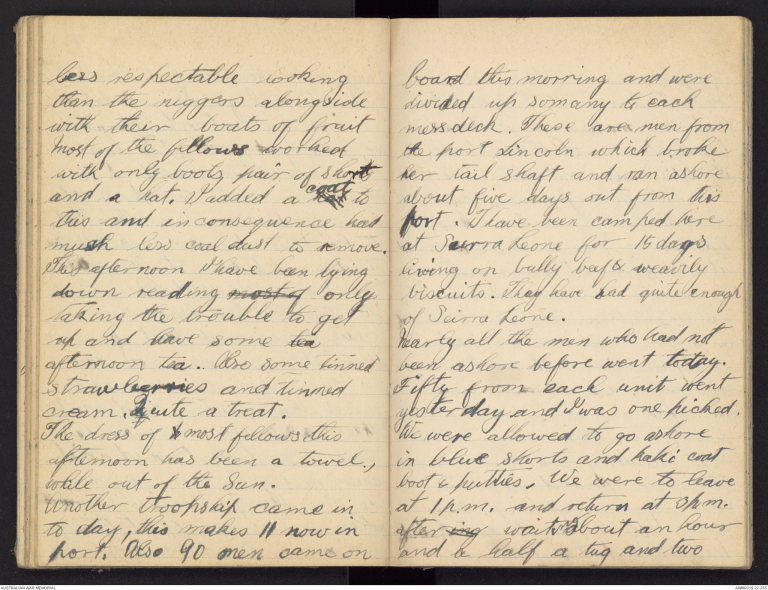 less respectable looking
than the niggers alongside
with their boats of fruit
most of the fellows worked
with only boots, pair of short
and a hat. I added a coat to
this and in consequence had
mush less coal dust to remove.
This afternoon I have been lying
down reading most of only
taking the trouble to get
up and have some tea
afternoon tea. Also some tinned
strawberries and tinned
cream. Quite a treat.
The dress of most fellows this
afternoon has been a towel,
while out of the Sun.
Another troopship came in
to day, this makes 11 now in
port. Also 90 men came on
board this morning and were
divided up so many to each
messdeck. These are men from
the port Lincoln which broke
her tail shaft and ran ashore
about five days out from this
port. I have been camped here
at Seirra Leone for 15 days
living on bully beef & weavily
biscuits. They have had quite enough
of Seirra Leone.
Nearly all the men who had not
been ashore before went today.
Fifty from each unit went
yesterday and I was one picked.
We were allowed to go ashore
in blue shorts and kaki coat
boot & putties. We were to leave
at 1 p.m. and return at 3 p.m.
after ing waiting about an hour
and a half a tug and two
AUSTRALIAN WAR MEMORIAL